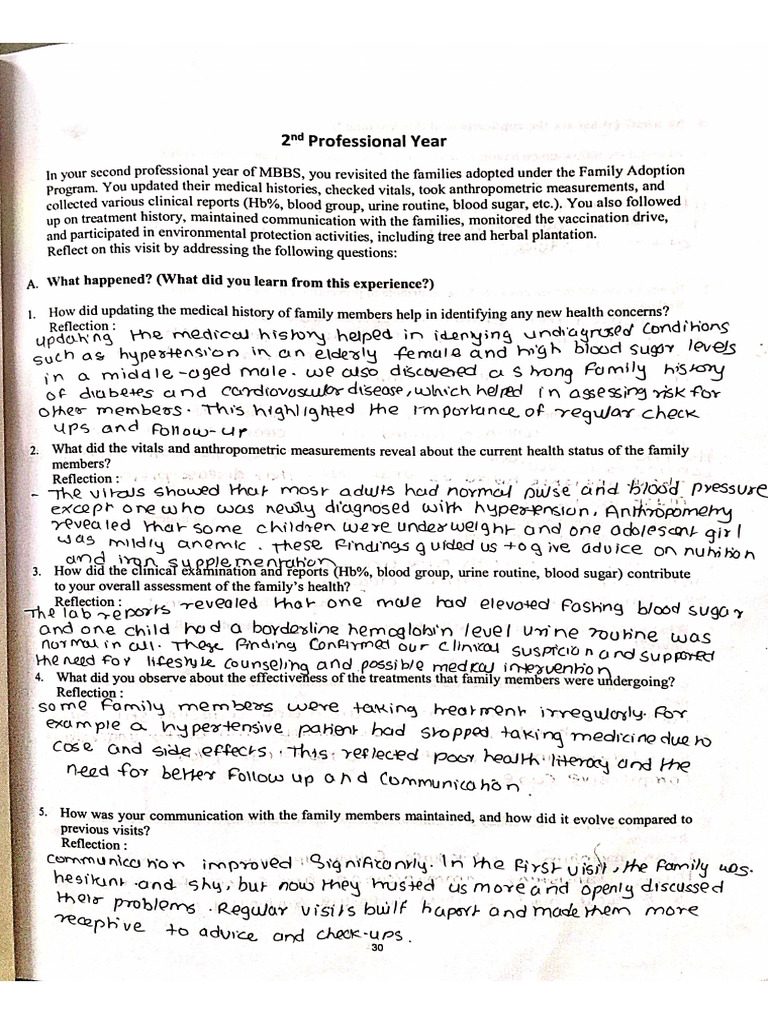 2nd Professional Year
In your second professional year of MBBS, you revisited the families adopted under the Family Adoption
Program. You updated their medical histories, checked vitals, took anthropometric measurements, and
collected various clinical reports (Hb%, blood group, urine routine, blood sugar, etc.). You also followed
up on treatment history, maintained communication with the families, monitored the vaccination drive,
and participated in environmental protection activities, including tree and herbal plantation.
Reflect on this visit by addressing the following questions:
A. What happened? (What did you learn from this experience?)
1. How did updating the medical history of family members help in identifying any new health concerns?
Reflection :
updating the medical history helped in idenying undiagnosed conditions
such as hypertension in an elderly female and high blood sugar levels
in a middle-aged male. we also discovered a strong family history
of diabetes and cardiovascular disease, which helped in assessing risk for
other members. This highlighted the importance of regular check
ups and follow-up
2. What did the vitals and anthropometric measurements reveal about the current health status of the family
members?
Reflection :
- The vitals showed that most adults had normal pulse and blood pressure
except one who was newly diagnosed with hypertension. Anthropometry
revealed that some children were underweight and one adolescent girl
was mildly anemic. These findings guided us to give advice on nutrition
and iron supplementation
3. How did the clinical examination and reports (Hb%, blood group, urine routine, blood sugar) contribute
to your overall assessment of the family's health?
Reflection :
The lab reports revealed that one male had elevated fasting blood sugar
and one child had a borderline hemoglobin level urine routine was
normal in all. These finding confirmed our clinical suspicion and supported
the need for lifestyle counseling and possible medical intervention
4. What did you observe about the effectiveness of the treatments that family members were undergoing?
Reflection :
some family members were taking treatment irregularly. For
example a hypertensive patient had stopped taking medicine due to
cose and side effects. This reflected poor health literacy and the
need for better follow up and communication.
5. How was your communication with the family members maintained, and how did it evolve compared to
previous visits?
Reflection :
communication improved significantly. In the first visit, the family was
hesitant and shy, but now they trusted us more and openly discussed
their problems. Regular visits built raport and made them more
receptive to advice and check-ups.
30